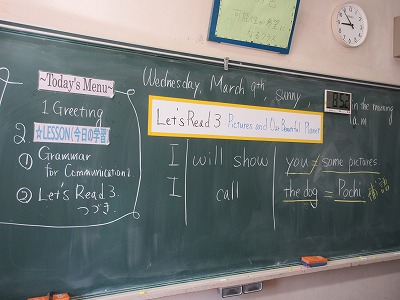 ~Today's Menu~
1 Greeting
2.
☆LESSON(今日の学習)
① Grammar
for Communication2
② Let's Read 3.
つづき.
Wednesday, March 9th, sunny,
8:52
in the morning
a.m
Let's Read 3 Pictures and Our Beautiful Planet
I will show you = some pictures.
I call the dog = Pochi. 補語